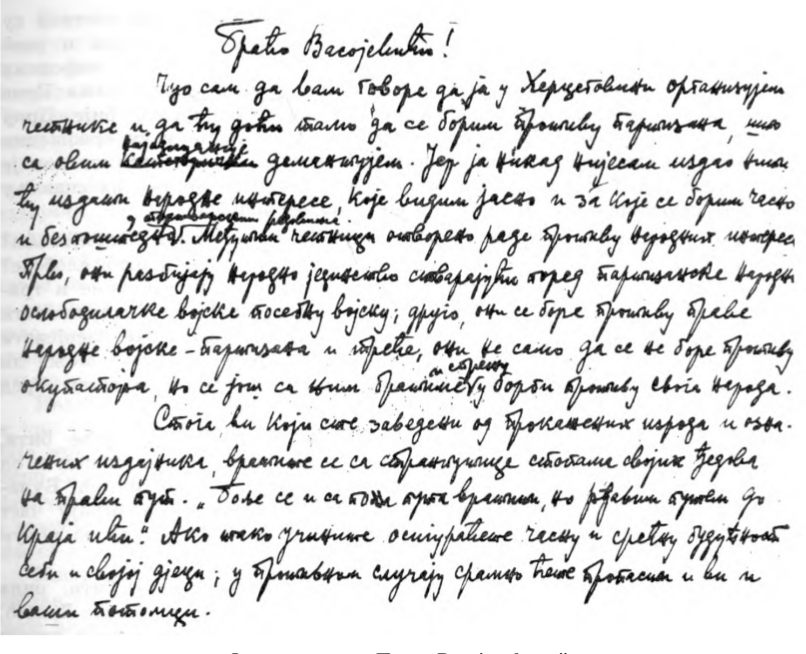 Браћо Васојевићи!
Чуо сам да вам говоре да ја у Херцеговини организујем
четнике и да ћу доћи тамо да се борим против партизана, што
најодлучније
са овим категорички демантујем. Јер ја никад нијесам издао нити
ћу издати народне интересе, које видим јасно и за које се борим часно
у партизанским редовима.
и беспоштедно. Међутим четници отворено раде против народних интереса
Прво, они разбијају народно јединство стварајући поред партизанске народно
ослободилачке војске посебну војску; друго, они се боре против праве
народне војске – партизана и треће, они не само да се не боре против
окупатора, но се још са њим братиме у борби против свога народа.
Стога, ви који сте заведени од прокажених изрода и озна-
чених издајника, вратите се са странпутице стопама својих ђедова
на прави пут. „Боље се и са пола пута вратити, но рђавим путем до
краја ићи.“ Ако тако учините осигураћете часну и срећну будућност
себи и својој дјеци; у противном случају срамно ћете пропасти и ви и
ваши потомци.